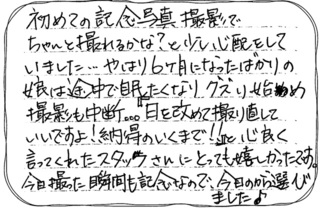 初めての記念写真撮影で
ちゃんと撮れるかな？と少し心配をして
いました…やはり6ヶ月になったばかりの
娘は途中で眠たくなりグズり始め
撮影も中断…『日を改めて撮り直して
いいですよ！納得のいくまで!!』と心良く
言ってくれたスタッフさんにとっても嬉しかったです。
今日撮った瞬間も記念なので、今日のから選び
ました♪